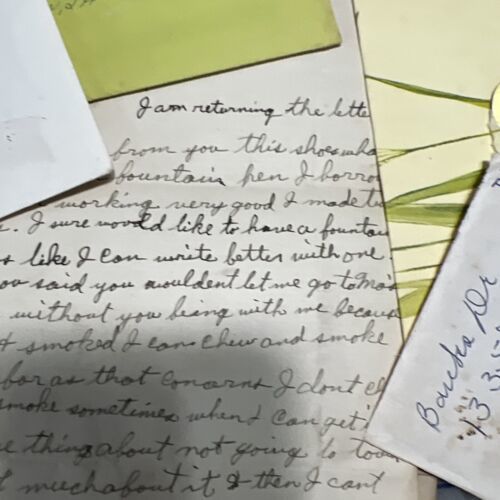 I am returning the lette
from you this shows wha
fountain pen I borro
working very good I made tw
. I sure would like to have a fountain
s like I can write better with one
ou said you wouldent let me go to Mo's
without you being with me becaus
t smoked I can chew and smoke
bor as that concerns I dont ch
smoke sometimes when I can get i
e thing about not going to tow
t much about it & then I cant
Boucher Dr
13 35